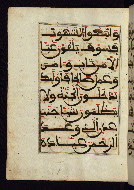 واتبعوا الشهوت
فسوف يلقون غيا
الا من تاب وامن
وعمل صلحا فاولئك
يدخلون الجنة ولا
يظلمون شيا جنت
عدن التي وعد
الرحمن عباده